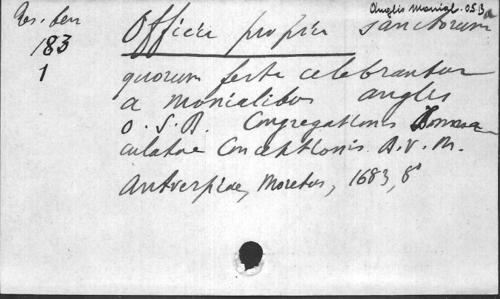 Anglis Monial. O.S.B.
Res. ben
183
1
Officia propria sanctorum
quorum festa celebrantur
a monialibus anglis
O.S.B. Congregationis Immacu
culatae Conceptionis B.V.M.
Antverpiae, Moretus, 1683, 8°